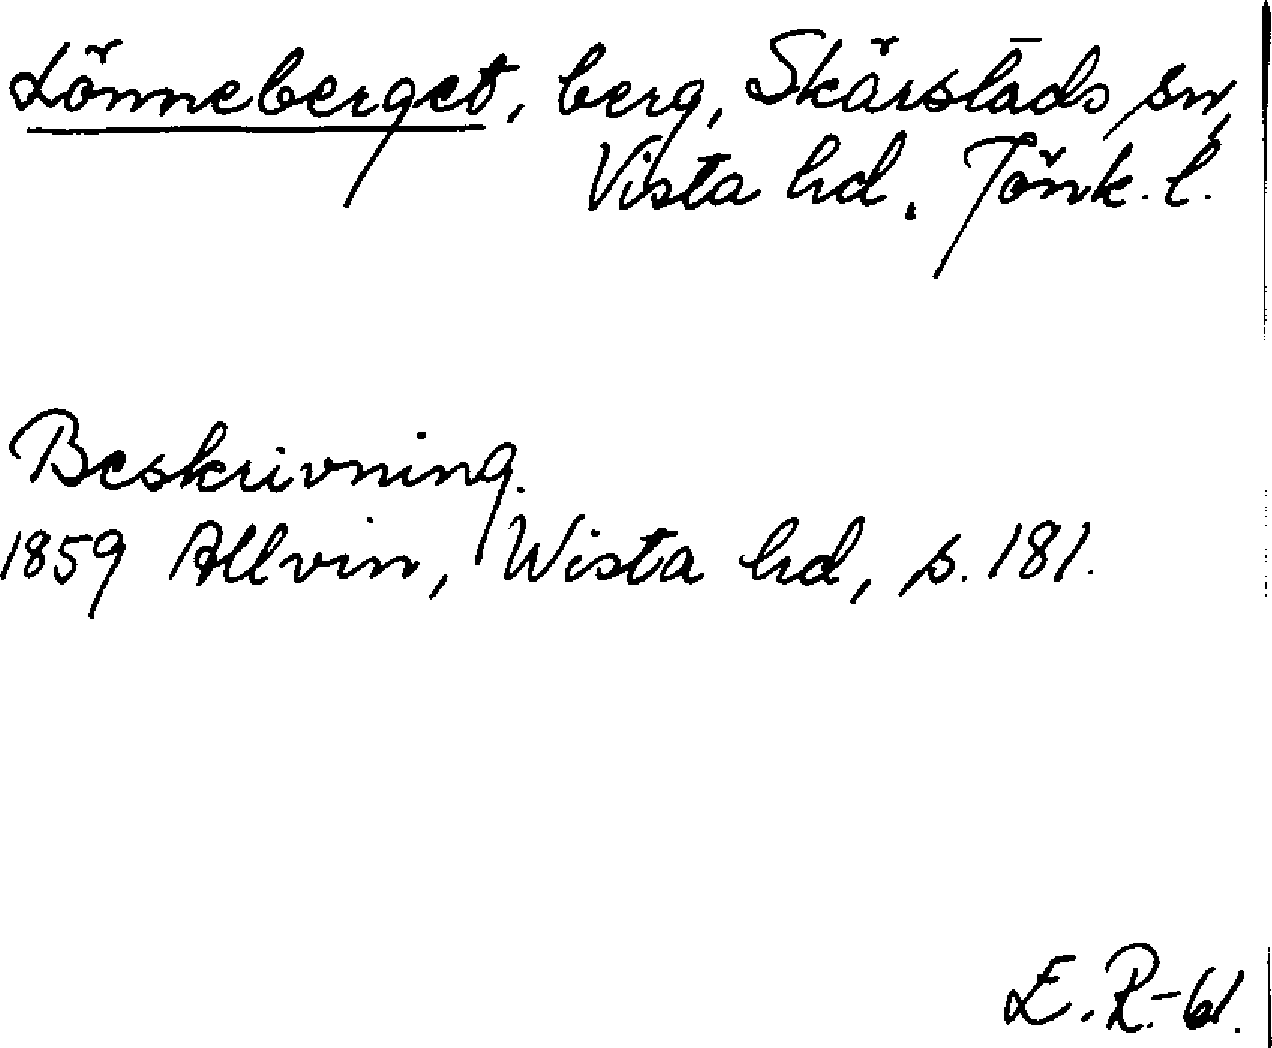 Lönneberget, berg, Skärstads sn,
Vista hd. Jönk. l.
Beskrivning.
1859 Allvin, Wista hd, s. 181.
E. R. - 61.